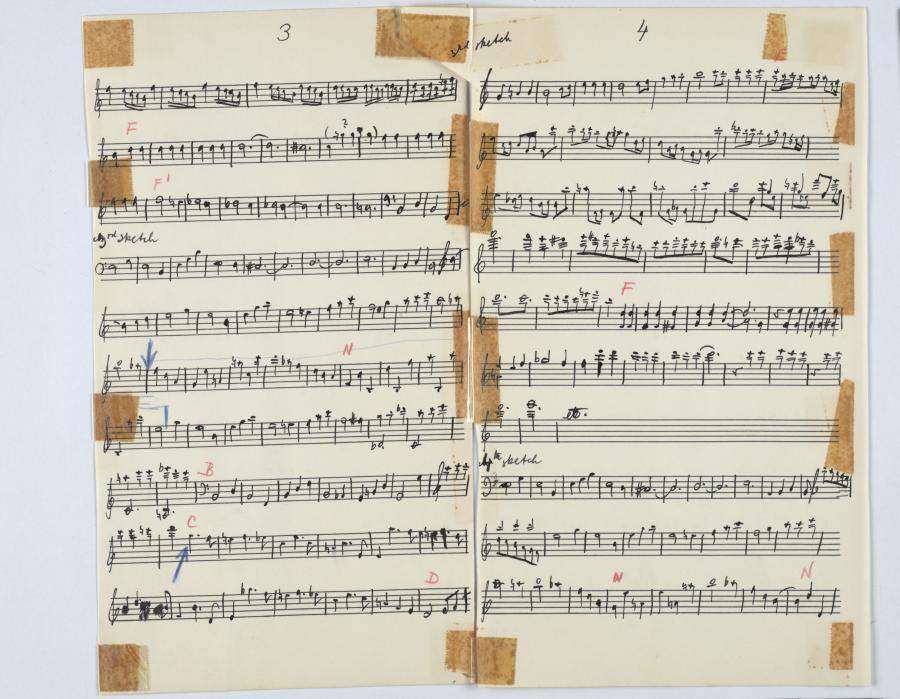 3
F
?
F'
3rd sketch
N
B
C
D
3rd sketch
4
F
etc.
4th sketch
N
N